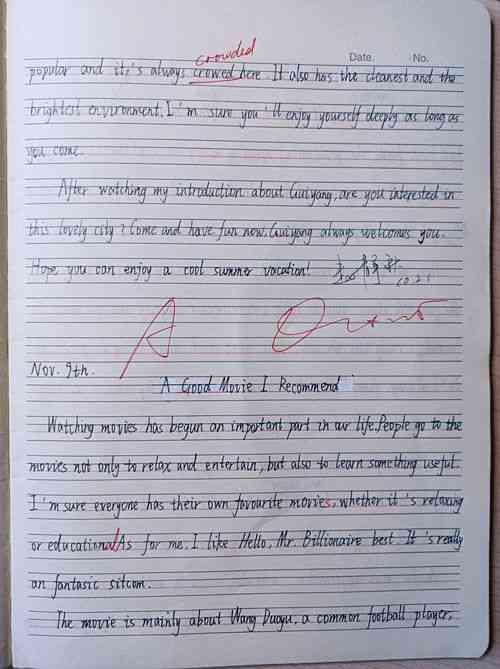 crowded
Date. No.
popular and it,'s always crowed here. It also has the cleanest and the
brightest environment. I'm sure you'll enjoy yourself deeply as long as
you come.
After watching my introduction about Guiyang, are you interested in
this lovely city? Come and have fun now. Guiyang always welcomes you.
Hope you can enjoy a cool summer vacation!
10.21
A
Nov. 9th.
A Good Movie I Recommend
Watching movies has begun an important part in our life. People go to the
movies not only to relax and entertain, but also to learn something useful.
I'm sure everyone has their own favourite movies, whether it's relaxing
or educational. As for me, I like Hello, Mr. Billionaire best. It's really
an fantasic sitcom.
The movie is mainly about Wang Duoyu, a common football player,